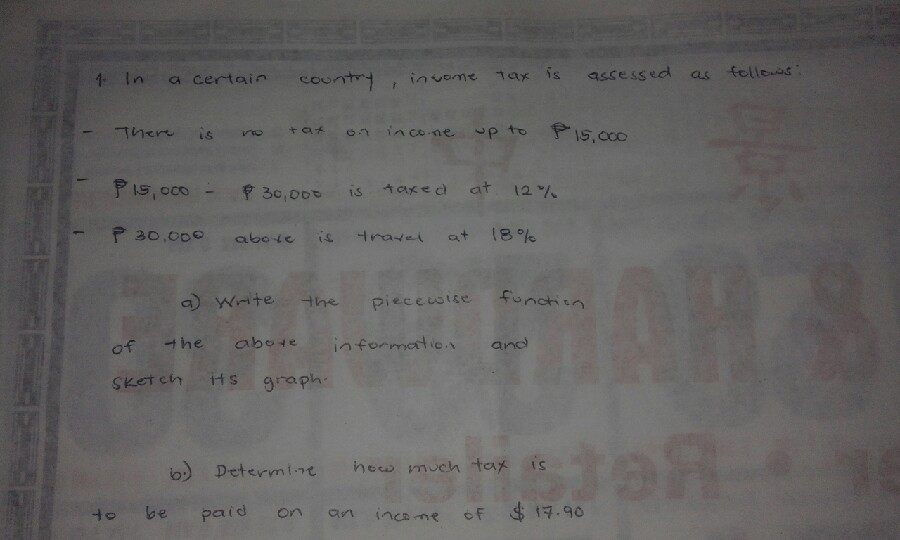 1. In a certain country, income Tax is assessed as follows:
- There is no tax on income up to ₱15,000
- ₱15,000 - ₱30,000 is taxed at 12%
- ₱30,000 above is travel at 18%
a) Write the piecewise function
of the above information and
sketch its graph.
b.) Determine how much tax is
to be paid on an income of $17.90
景
中
& HARDWARE
er • Retailer